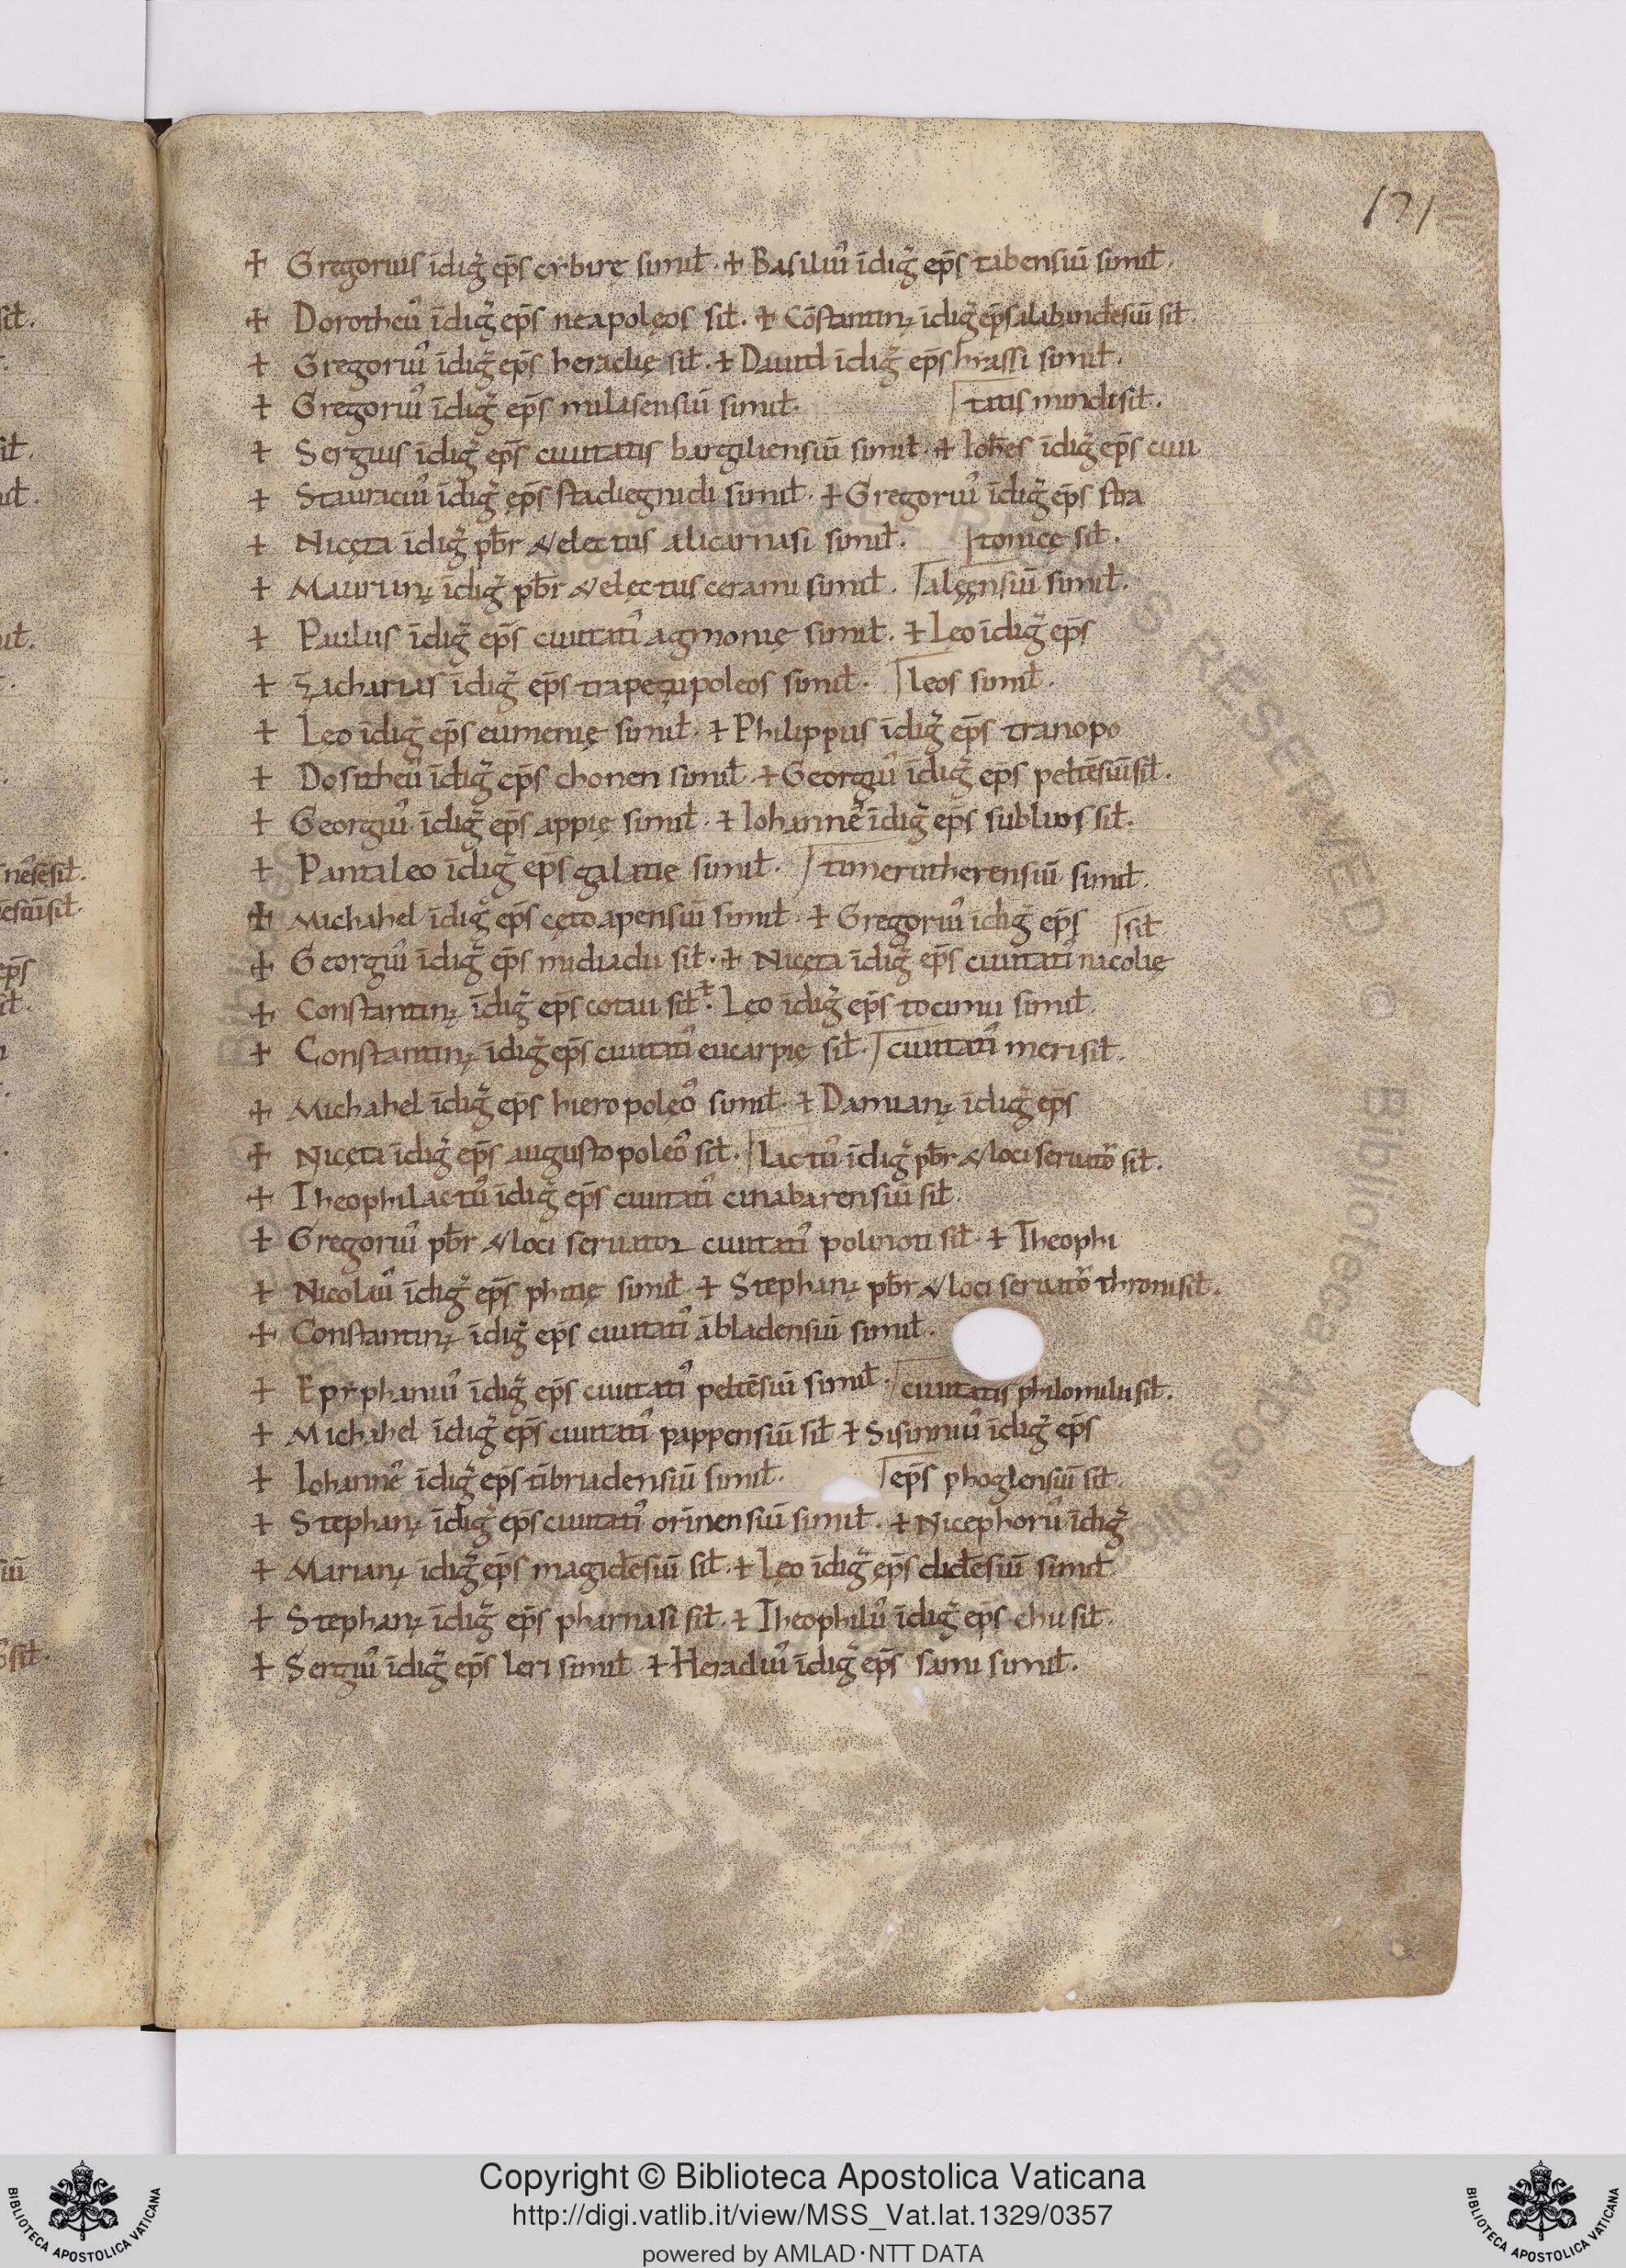 171
✝ Gregorius īdig̃ ep̄s cẏbirę simiƚ. ✝ Basiliu᾽ īdig̃ ep̄s tabensiū simiƚ.
✝ Dorotheu᾽ īdig̃ ep̄s neapolęos siƚ. ✝ Cōstantinꝰ idig̃ ep̄s alabandēsiū siƚ.
✝ Gregoriu᾽ īdig̃ ep̄s heraclię siƚ. ✝ Dauid idig̃ ep̄s hẏassi simiƚ.
✝ Gregoriu᾽ īdig̃ ep̄s milasensiū simiƚ. tatis mindi siƚ.
✝ Sergius īdig̃ ep̄s ciuitatis bargiliensiū simiƚ. ✝ Ioh̄es īdig̃ ep̄s ciui
✝ Stauraciu᾽ īdig̃ ep̄s stadiegnidi simiƚ. ✝ Gregoriu᾽ īdig̃ ep̄s stra
✝ Nicęta īdig̃ pƀr & electus alicarnasi simiƚ. tonicę siƚ.
✝ Maurinꝰ īdig̃ pƀr & elęctus cerami simiƚ. alęęnsiū simiƚ.
✝ Paulus īdig̃ ep̄s ciuitati᾽ agmonię simiƚ. ✝ Leo īdig̃ ep̄s
✝ Zacharias īdig̃ ep̄s trapezupoleos simiƚ. leos simiƚ.
✝ Leo īdig̃ ep̄s eumenię simiƚ. ✝ Philippus īdig̃ ep̄s tranopo
✝ Dositheu᾽ īdig̃ ep̄s chonen simiƚ. ✝ Georgiu᾽ īdig̃ ep̄s peltēsiū siƚ.
✝ Georgiu᾽ īdig̃ ep̄s appię simiƚ. ✝ Iohanne᾽ īdig̃ ep̄s sublios siƚ.
✝ Pantaleo īdig̃ ep̄s galatię simiƚ. timerutherensiū simiƚ.
✝ Michahel īdig̃ ep̄s cętoapensiū simiƚ. ✝ Gregoriu᾽ īdig̃ ep̄s siƚ
✝ Georgiu᾽ īdig̃ ep̄s midiadii siƚ. ✝ Nicęta īdig̃ ep̄s ciuitati᾽ nacolię
✝ Constantinꝰ īdig̃ ep̄s cotaii siƚ. ✝ Leo īdig̃ ep̄s tocimii simiƚ.
✝ Constantinꝰ īdig̃ ep̄s ciuitati᾽ eucarpię siƚ. ciuitati᾽ meri siƚ.
✝ Michahel īdig̃ ep̄s hieropoleo᾽ simiƚ. ✝ Damianꝰ īdig̃ ep̄s
✝ Nicęta īdig̃ ep̄s augustopoleo᾽ siƚ. lactu᾽ īdig̃ pƀr & loci seruato᾽ siƚ.
✝ Theophilactu᾽ īdig̃ ep̄s ciuitati᾽ cinabarensiū siƚ.
✝ Gregoriu᾽ pƀr & loci seruator ciuitati᾽ polinoti siƚ. ✝ Theophi
✝ Nicolau᾽ īdig̃ ep̄s phitię simiƚ. ✝ Stephanꝰ pƀr & loci seruato᾽ throni siƚ.
✝ Constantinꝰ īdig̃ ep̄s ciuitati᾽ ābladensiū simiƚ.
✝ Epẏphaniu᾽ īdig̃ ep̄s ciuitati᾽ peltēsiū simiƚ. ciuitatis philomilii siƚ.
✝ Michahel īdig̃ ep̄s ciuitati᾽ pappensiū siƚ ✝ Sisinniu᾽ īdig̃ ep̄s
✝ Iohanne᾽ īdig̃ ep̄s tibriadensiū simiƚ. ep̄s phoglensiū siƚ.
✝ Stephanꝰ īdig̃ ep̄s ciuitati᾽ orinensiū simiƚ. ✝ Nicephoru᾽ īdig̃
✝ Marianꝰ idig̃ ep̄s magidēsiū siƚ. ✝ Leo īdig̃ ep̄s clidēsiū simiƚ
✝ Stephanꝰ īdig̃ ep̄s pharnasi siƚ. ✝ Theophilu᾽ īdig̃ ep̄s chii siƚ.
✝ Sergiu᾽ īdig̃ ep̄s leri simiƚ ✝ Heracliu᾽ īdig̃ ep̄s sami simiƚ.
Copyright © Biblioteca Apostolica Vaticana
http://digi.vatlib.it/view/MSS_Vat.lat.1329/0357
powered by AMLAD·NTT DATA
BIBLIOTECA APOSTOLICA VATICANA
BIBLIOTECA APOSTOLICA VATICANA